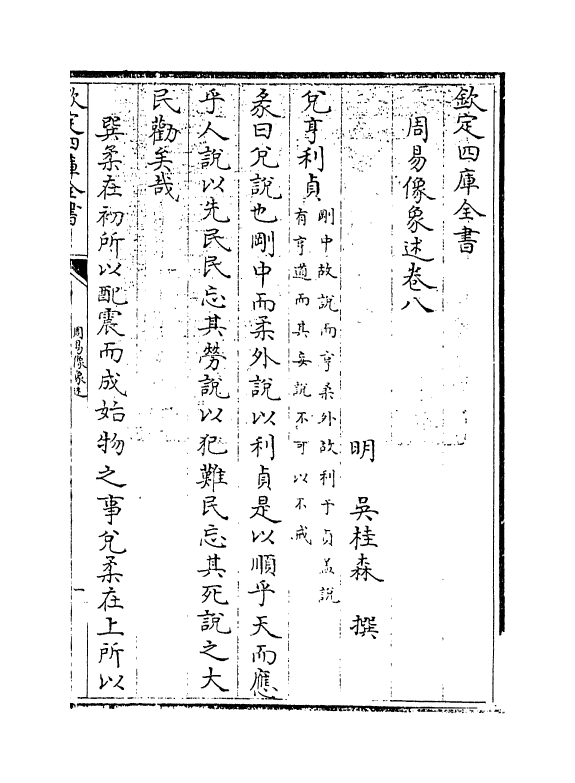 欽定四庫全書
周易像象述卷八
明 吳桂森 撰
兌亨利貞
剛中故說而亨柔外故利于貞蓋說
有亨道而其妄說不可以不戒
彖曰兌說也剛中而柔外說以利貞是以順乎天而應
乎人說以先民民忘其勞說以犯難民忘其死說之大
民勸矣哉
巽柔在初所以配震而成始物之事兌柔在上所以
欽定四庫全書
周易像象述
一